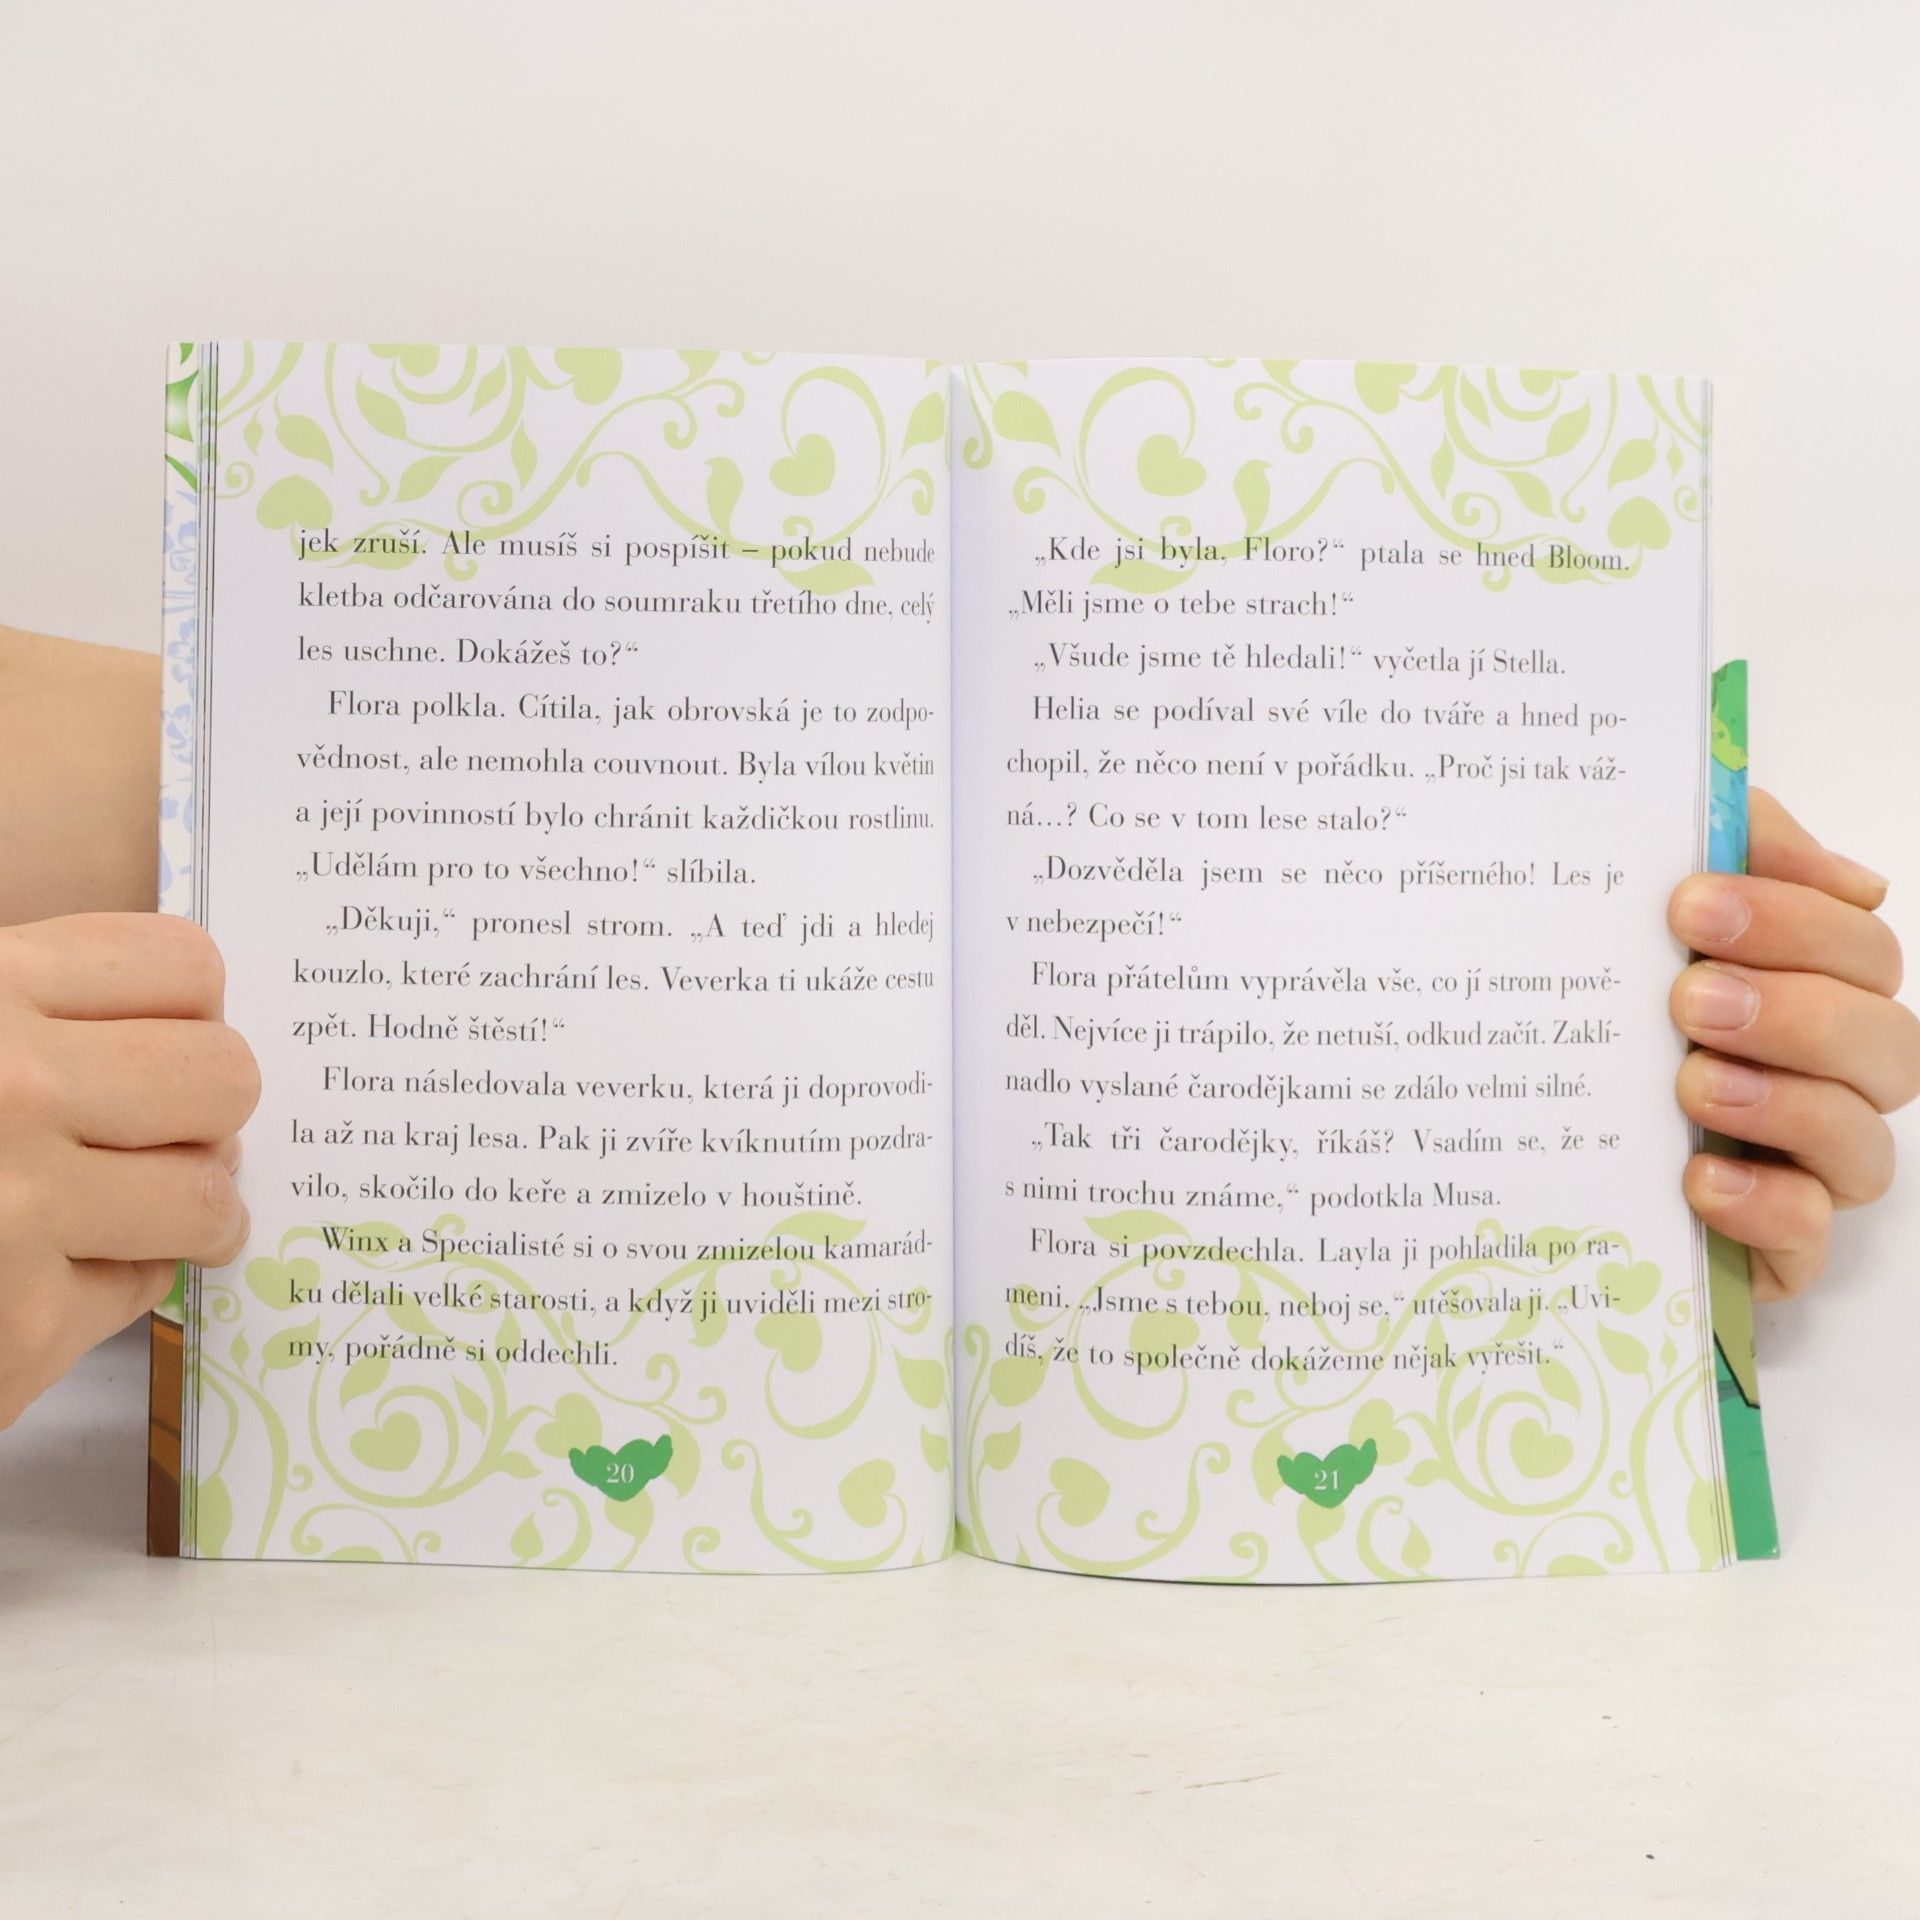 jek zruší. Ale musíš si pospíšit – pokud nebude
kletba odčarována do soumraku třetího dne, celý
les uschne. Dokážeš to?“
Flora polkla. Cítila, jak obrovská je to zodpo-
vědnost, ale nemohla couvnout. Byla vílou květin
a její povinností bylo chránit každičkou rostlinu.
„Udělám pro to všechno!“ slíbila.
„Děkuji,“ pronesl strom. „A teď jdi a hledej
kouzlo, které zachrání les. Veverka ti ukáže cestu
zpět. Hodně štěstí!“
Flora následovala veverku, která ji doprovodi-
la až na kraj lesa. Pak ji zvíře kvíknutím pozdra-
vilo, skočilo do keře a zmizelo v houštině.
Winx a Specialisté si o svou zmizelou kamarád-
ku dělali velké starosti, a když ji uviděli mezi stro-
my, pořádně si oddechli.
20
„Kde jsi byla, Floro?“ ptala se hned Bloom.
„Měli jsme o tebe strach!“
„Všude jsme tě hledali!“ vyčetla jí Stella.
Helia se podíval své víle do tváře a hned po-
chopil, že něco není v pořádku. „Proč jsi tak váž-
ná…? Co se v tom lese stalo?“
„Dozvěděla jsem se něco příšerného! Les je
v nebezpečí!“
Flora přátelům vyprávěla vše, co jí strom pově-
děl. Nejvíce ji trápilo, že netuší, odkud začít. Zaklí-
nadlo vyslané čarodějkami se zdálo velmi silné.
„Tak tři čarodějky, říkáš? Vsadím se, že se
s nimi trochu známe,“ podotkla Musa.
Flora si povzdechla. Layla ji pohladila po ra-
meni. „Jsme s tebou, neboj se,“ utěšovala ji. „Uvi-
díš, že to společně dokážeme nějak vyřešit.“
21